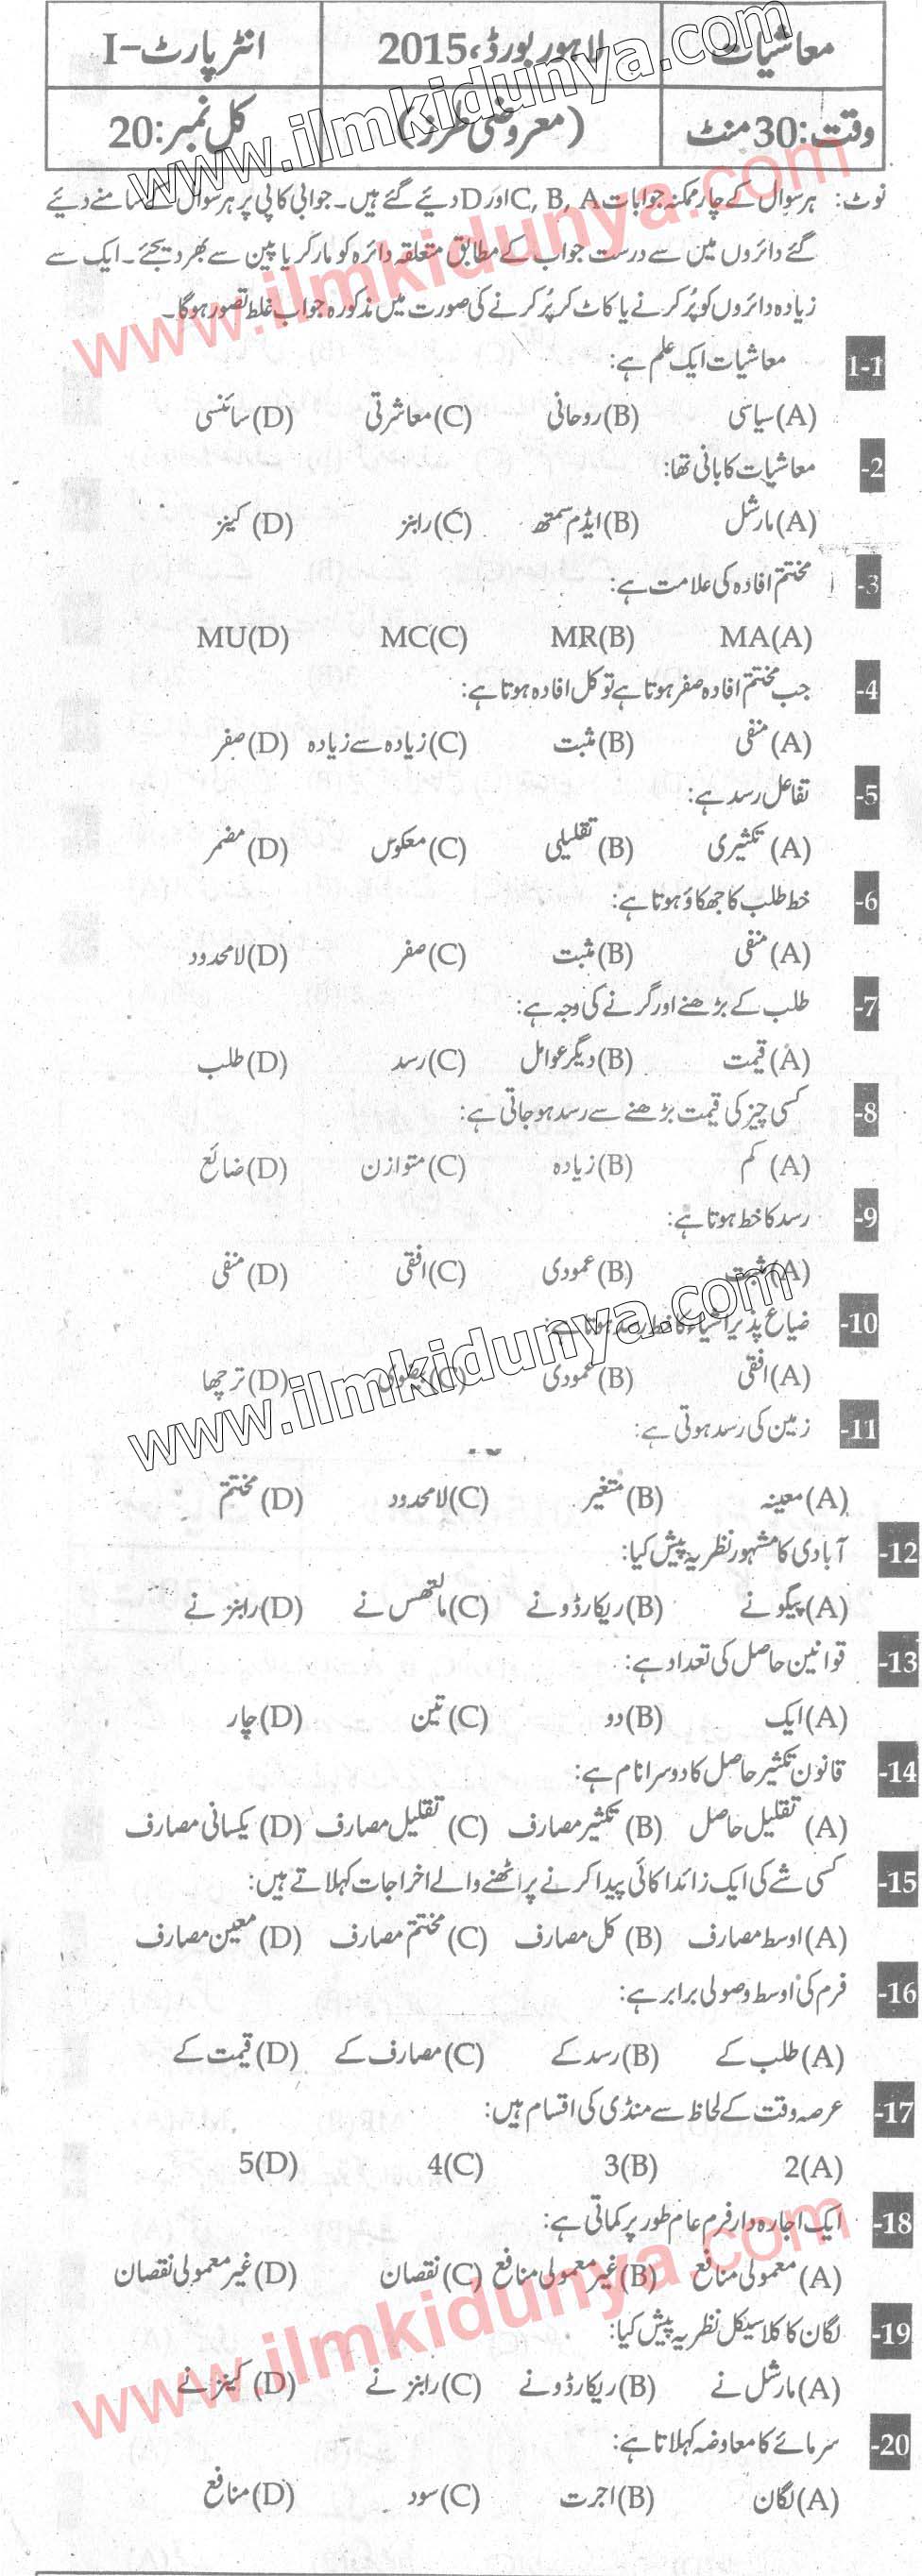 معاشیات لاہور بورڈ، 2015 انٹر پارٹ-I
وقت: 30 منٹ (معروضی طرز) کل نمبر: 20
نوٹ: ہر سوال کے چار ممکنہ جوابات C, B, A اور D دیئے گئے ہیں۔ جوابی کاپی پر ہر سوال کے سامنے دیئے
گئے دائروں میں سے درست جواب کے مطابق متعلقہ دائرہ کو مارکر یا پین سے بھر دیجئے۔ ایک سے
زیادہ دائروں کو پُر کرنے یا کاٹ کر پُر کرنے کی صورت میں مذکورہ جواب غلط تصور ہوگا۔
1-1 معاشیات ایک علم ہے:
(A) سیاسی (B) روحانی (C) معاشرتی (D) سائنسی
-2 معاشیات کا بانی تھا:
(A) مارشل (B) ایڈم سمتھ (C) رابنز (D) کینز
-3 مختتم افادہ کی علامت ہے:
MA(A) MR(B) MC(C) MU(D)
-4 جب مختتم افادہ صفر ہوتا ہے تو کل افادہ ہوتا ہے:
(A) منفی (B) مثبت (C) زیادہ سے زیادہ (D) صفر
-5 تفاعل رسد ہے:
(A) تکثیری (B) تقلیلی (C) معکوس (D) مضمر
-6 خط طلب کا جھکاؤ ہوتا ہے:
(A) منفی (B) مثبت (C) صفر (D) لامحدود
-7 طلب کے بڑھنے اور گرنے کی وجہ ہے:
(A) قیمت (B) دیگر عوامل (C) رسد (D) طلب
-8 کسی چیز کی قیمت بڑھنے سے رسد ہو جاتی ہے:
(A) کم (B) زیادہ (C) متوازن (D) ضائع
-9 رسد کا خط ہوتا ہے:
(A) مثبت (B) عمودی (C) افقی (D) منفی
-10 ضیاع پذیر اشیاء کا خط رسد ہوتا ہے:
(A) افقی (B) عمودی (C) بیضوی (D) ترچھا
-11 زمین کی رسد ہوتی ہے:
(A) معینہ (B) متغیر (C) لامحدود (D) مختتم
-12 آبادی کا مشہور نظریہ پیش کیا:
(A) پیگو نے (B) ریکارڈو نے (C) مالتھس نے (D) رابنز نے
-13 قوانین حاصل کی تعداد ہے:
(A) ایک (B) دو (C) تین (D) چار
-14 قانون تکثیر حاصل کا دوسرا نام ہے:
(A) تقلیل حاصل (B) تکثیر مصارف (C) تقلیل مصارف (D) یکسانی مصارف
-15 کسی شے کی ایک زائد اکائی پیدا کرنے پر اٹھنے والے اخراجات کہلاتے ہیں:
(A) اوسط مصارف (B) کل مصارف (C) مختتم مصارف (D) معین مصارف
-16 فرم کی اوسط وصولی برابر ہے:
(A) طلب کے (B) رسد کے (C) مصارف کے (D) قیمت کے
-17 عرصہ وقت کے لحاظ سے منڈی کی اقسام ہیں:
2(A) 3(B) 4(C) 5(D)
-18 ایک اجارہ دار فرم عام طور پر کماتی ہے:
(A) معمولی منافع (B) غیر معمولی منافع (C) نقصان (D) غیر معمولی نقصان
-19 لگان کا کلاسیکل نظریہ پیش کیا:
(A) مارشل نے (B) ریکارڈو نے (C) رابنز نے (D) کینز نے
-20 سرمائے کا معاوضہ کہلاتا ہے:
(A) لگان (B) اجرت (C) سود (D) منافع
www.ilmkidunya.com
www.ilmkidunya.com
www.ilmkidunya.com
www.ilmkidunya.com